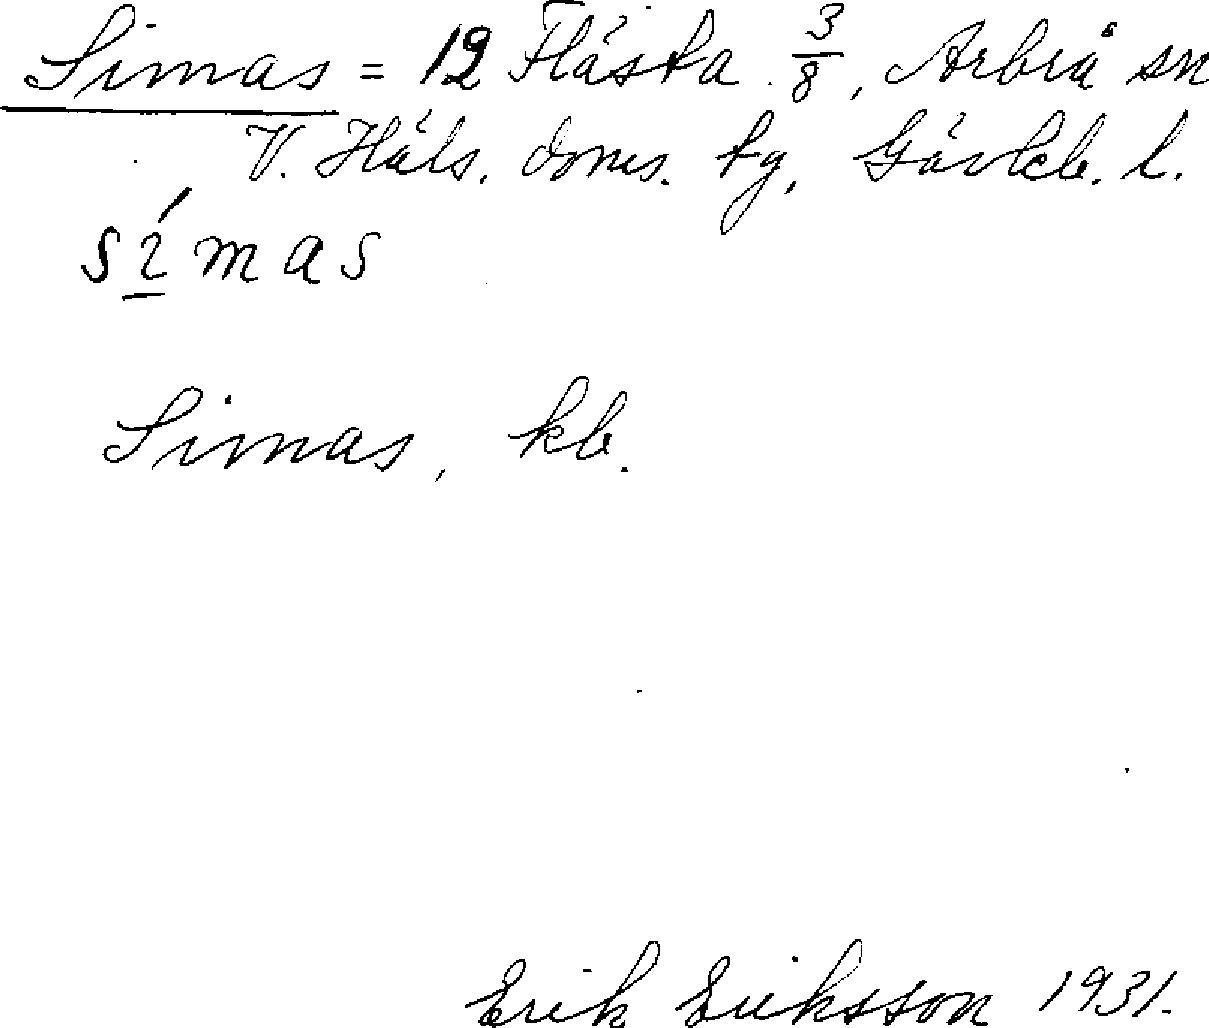 Simas = 12 Flästa 3/8, Arbrå sn
V. Häls. doms. tg, Gävleb. l.
símas
Simas, kb.
Erik Eriksson 1931.